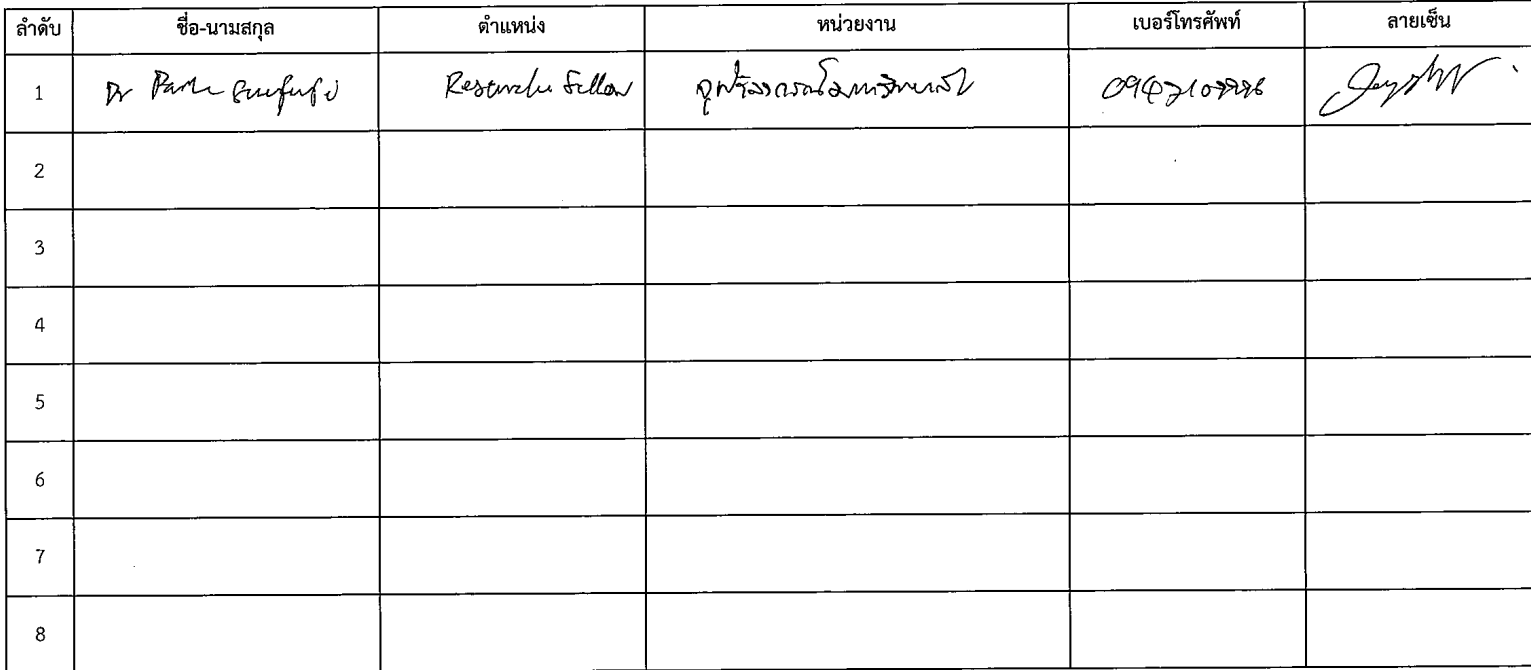 ลำดับ ชื่อ-นามสกุล ตำแหน่ง หน่วยงาน เบอร์โทรศัพท์ ลายเซ็น
1 Dr Research Fellow จุฬาลงกรณ์มหาวิทยาลัย
2
3
4
5
6
7
8